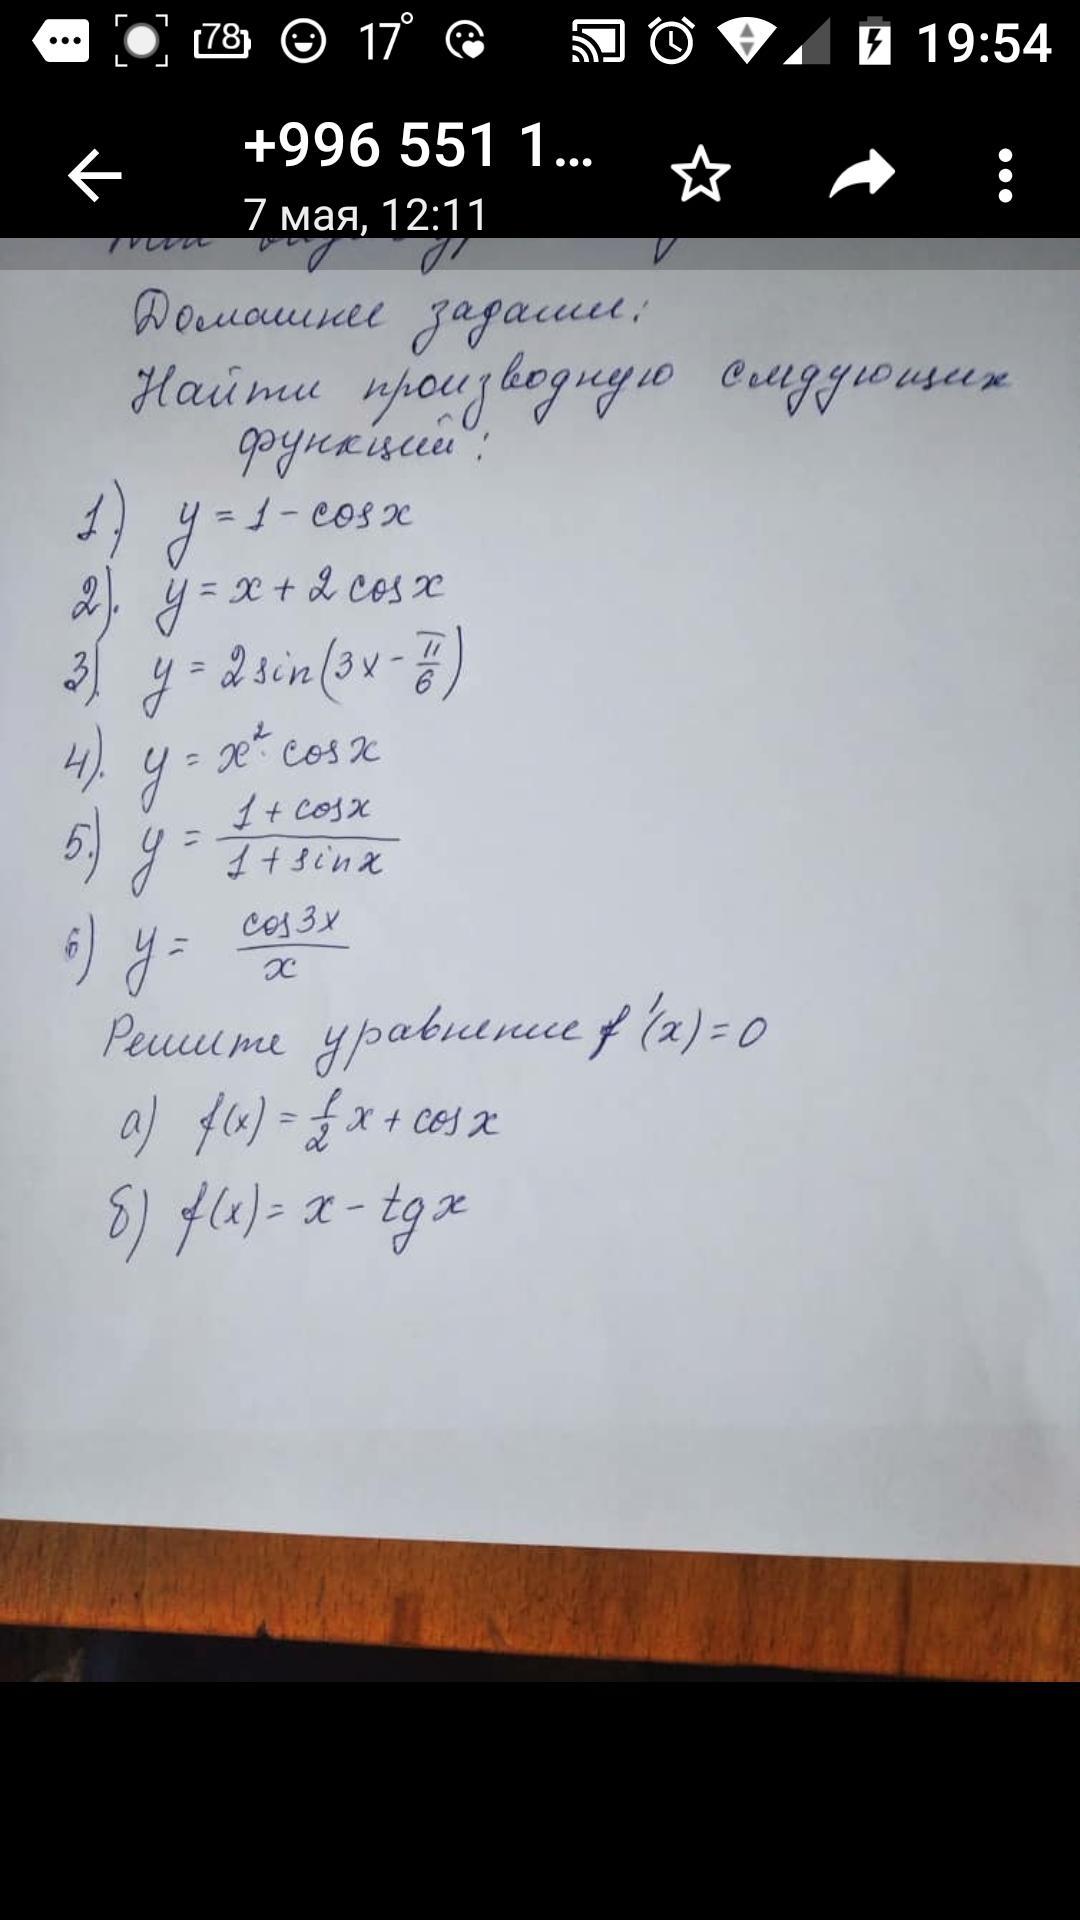 78 17° 19:54
+996 551 1...
7 мая, 12:11
Домашнее задание:
Найти производную следующих
функций:
1.) y = 1 - cos x
2). y = x + 2 cos x
3). y = 2 sin(3x - π/6)
4). y = x² · cos x
5.) y = (1 + cos x)/(1 + sin x)
6) y = cos 3x / x
Решите уравнение f'(x) = 0
а) f(x) = 1/2 x + cos x
б) f(x) = x - tg x